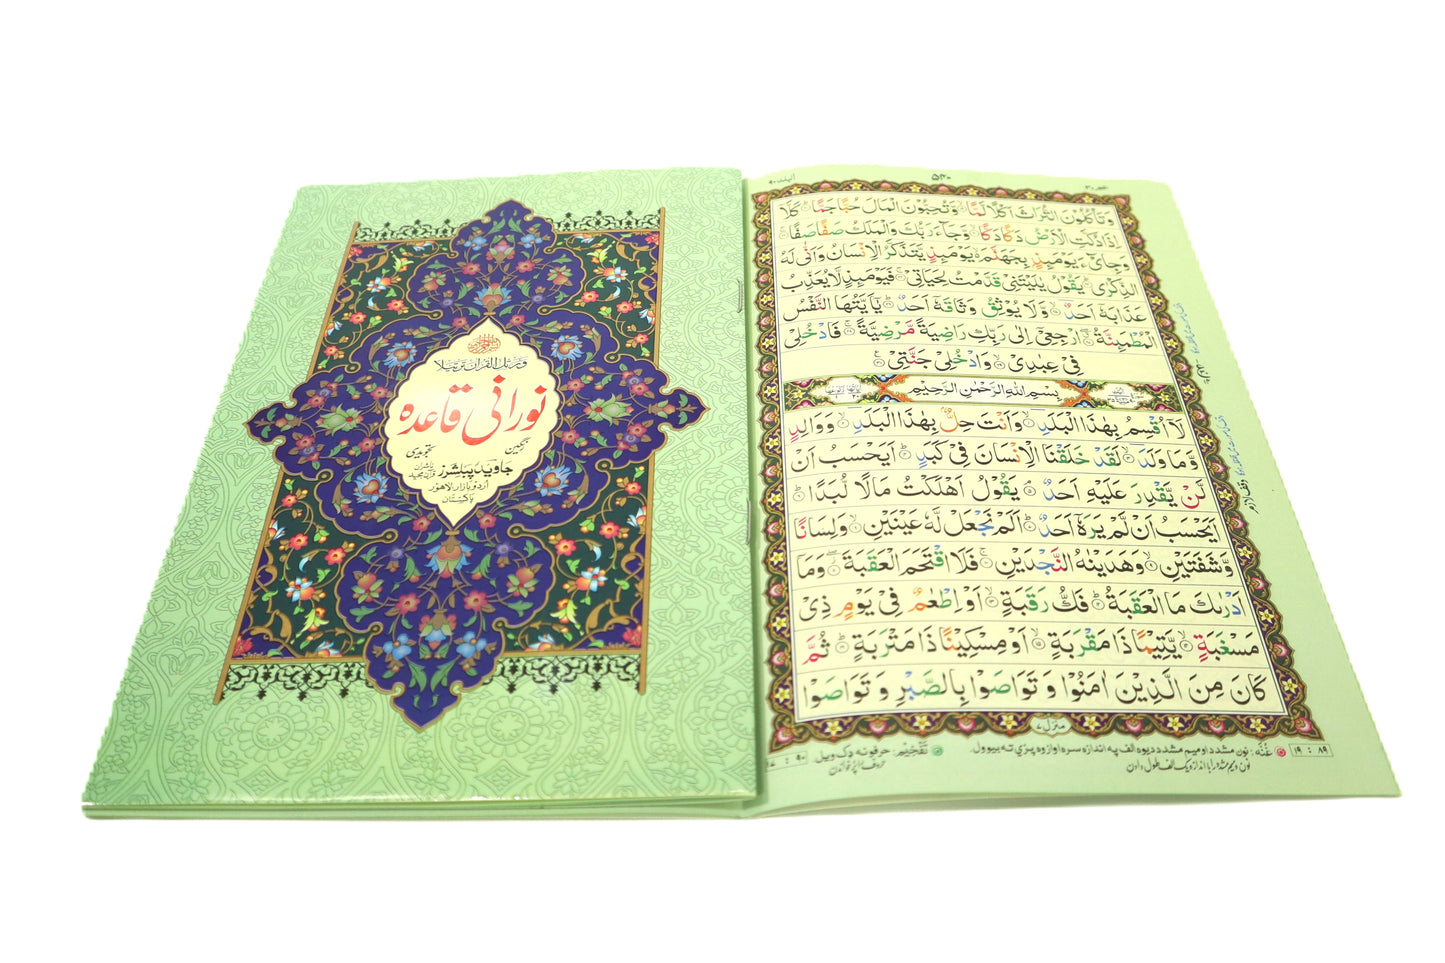 ورتل القرآن ترتیلا
نورانی قاعدہ
رنگین
تجویدی
جاوید پبلشرز
اردو بازار لاہور
پاکستان
۵۴۰
وَتَاۡكُلُوۡنَ التُّرَاثَ اَكۡلًا لَّمًّا ۙ وَّتُحِبُّوۡنَ الۡمَالَ حُبًّا جَمًّا ؕ كَلَّاۤ
اِذَا دُكَّتِ الۡاَرۡضُ دَكًّا دَكًّا ۙ وَّجَآءَ رَبُّكَ وَالۡمَلَكُ صَفًّا صَفًّا ۚ
وَجِایْٓءَ يَوۡمَٮِٕذٍۢ بِجَهَنَّمَ ۙ يَوۡمَٮِٕذٍ يَّتَذَكَّرُ الۡاِنۡسَانُ وَاَنّٰى لَهُ
الذِّكۡرٰى ؕ يَقُوۡلُ يٰلَيۡتَنِىۡ قَدَّمۡتُ لِحَيَاتِىۡ ۚ فَيَوۡمَٮِٕذٍ لَّا يُعَذِّبُ
عَذَابَهٗۤ اَحَدٌ ۙ وَّلَا يُوۡثِقُ وَثَاقَهٗۤ اَحَدٌ ؕ يٰۤاَيَّتُهَا النَّفۡسُ
الۡمُطۡمَٮِٕنَّةُ ۖ ارۡجِعِىۡۤ اِلٰى رَبِّكِ رَاضِيَةً مَّرۡضِيَّةً ۚ فَادۡخُلِىۡ
فِىۡ عِبٰدِىۙ وَادۡخُلِىۡ جَنَّتِى
بِسۡمِ اللّٰهِ الرَّحۡمٰنِ الرَّحِيۡمِ
لَاۤ اُقۡسِمُ بِهٰذَا الۡبَلَدِ ۙ وَاَنۡتَ حِلٌّۢ بِهٰذَا الۡبَلَدِ ۙ وَوَالِدٍ
وَّمَا وَلَدَ ۙ لَقَدۡ خَلَقۡنَا الۡاِنۡسَانَ فِىۡ كَبَدٍ ؕ اَيَحۡسَبُ اَنۡ
لَّنۡ يَّقۡدِرَ عَلَيۡهِ اَحَدٌ ۘ يَقُوۡلُ اَهۡلَكۡتُ مَالًا لُّبَدًا ؕ
اَيَحۡسَبُ اَنۡ لَّمۡ يَرَهٗۤ اَحَدٌ ؕ اَلَمۡ نَجۡعَلۡ لَّهٗ عَيۡنَيۡنِ ۙ وَلِسَانًا
وَّشَفَتَيۡنِ ۙ وَهَدَيۡنٰهُ النَّجۡدَيۡنِ ۚ فَلَا اقۡتَحَمَ الۡعَقَبَةَ ۖ وَمَاۤ
اَدۡرٰٮكَ مَا الۡعَقَبَةُ ؕ فَكُّ رَقَبَةٍ ۙ اَوۡ اِطۡعٰمٌ فِىۡ يَوۡمٍ ذِىۡ
مَسۡغَبَةٍ ۙ يَّتِيۡمًا ذَا مَقۡرَبَةٍ ۙ اَوۡ مِسۡكِيۡنًا ذَا مَتۡرَبَةٍ ؕ ثُمَّ
كَانَ مِنَ الَّذِيۡنَ اٰمَنُوۡا وَتَوَاصَوۡا بِالصَّبۡرِ وَتَوَاصَوۡا
منزل ۷
۸۹ : ۱۹
غُنّه: نون مشدد او ميم مشدد ديوه الف په اندازه سره اواز وه پزې ته بيوول.
تَفْخِيْم: حرفونه ډک ويل
نون ومیم مشدد را با اندازه یک الف طول دادن
حروف را پر خواندن